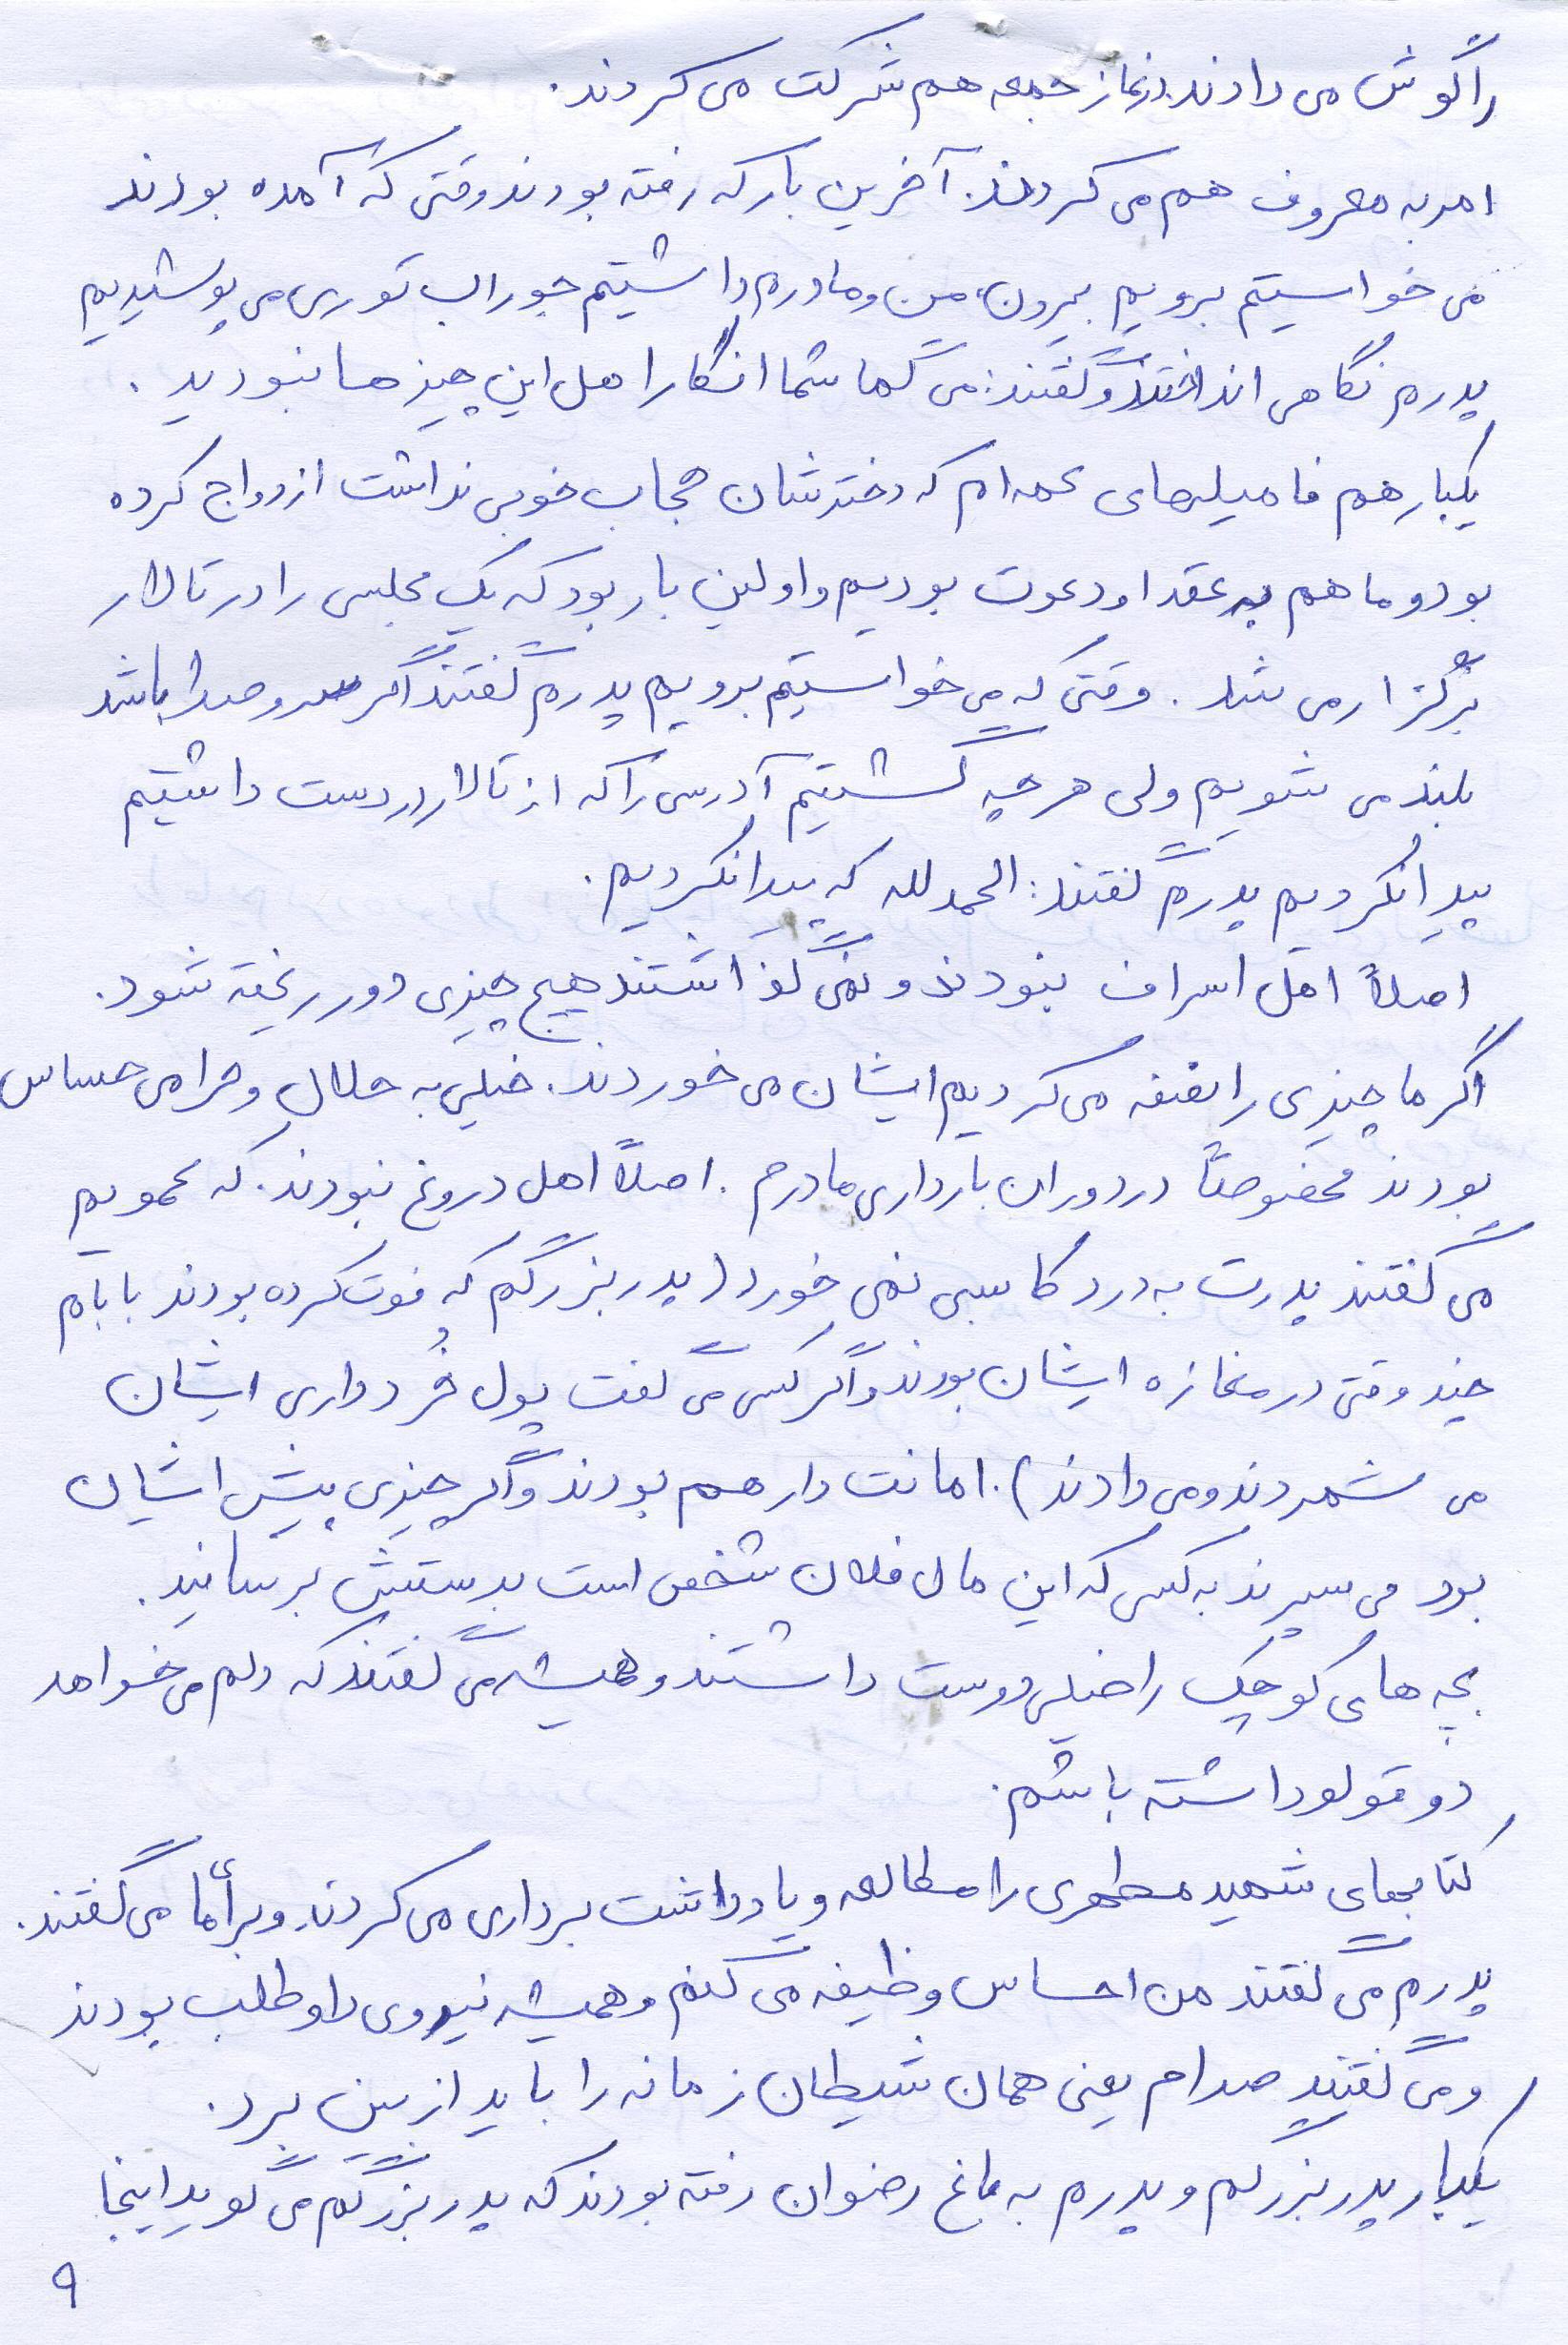 را گوش می دادند. درنماز جمعه هم شرکت می کردند.
امر به معروف هم می کردند. آخرین بار که رفته بودند وقتی که آمده بودند
می خواستیم برویم بیرون، من و مادرم داشتیم جوراب توری می پوشیدیم
پدرم نگاهی انداختند و گفتند: می گما شما انگار اهل این چیزها نبودید.
یکبار هم فامیلهای عمه ام که دخترشان حجاب خوبی نداشت ازدواج کرده
بود و ما هم به عقد او دعوت بودیم و اولین بار بود که یک مجلسی را در تالار
برگزار می شد. وقتی که می خواستیم برویم پدرم گفتند اگر سر و صدا باشد
بلند می شویم ولی هر چه گشتیم آدرسی را که از تالار در دست داشتیم
پیدا نکردیم پدرم گفتند: الحمدلله که پیدا نکردیم.
اصلاً اهل اسراف نبودند و نمی گذاشتند هیچ چیزی دور ریخته شود.
اگر ما چیزی را نصفه می کردیم ایشان می خوردند. خیلی به حلال و حرامی حساس
بودند مخصوصاً در دوران بارداری مادرم. اصلاً اهل دروغ نبودند. که عمویم
می گفتند پدرت به درد کاسبی نمی خورد (پدر بزرگم که فوت کرده بودند بابام
چند وقتی در مغازه ایشان بودند و اگر کسی می گفت پول خُرد داری ایشان
می شمردند و می دادند). امانت دار هم بودند و اگر چیزی پیش ایشان
بود می سپردند به کسی که این مال فلان شخص است بدستش برسانید.
بچه های کوچک را خیلی دوست داشتند و همیشه می گفتند که دلم می خواهد
دوقولو داشته باشم.
کتابهای شهید مطهری را مطالعه و یادداشت برداری می کردند و برای ما می گفتند.
پدرم می گفتند من احساس وظیفه می کنم و همیشه نیروی داوطلب بودند
و می گفتند صدام یعنی همان شیطان زمانه را باید از بین برد.
یکبار پدر بزرگم و پدرم به باغ رضوان رفته بودند که پدر بزرگم می گوید اینجا
۹